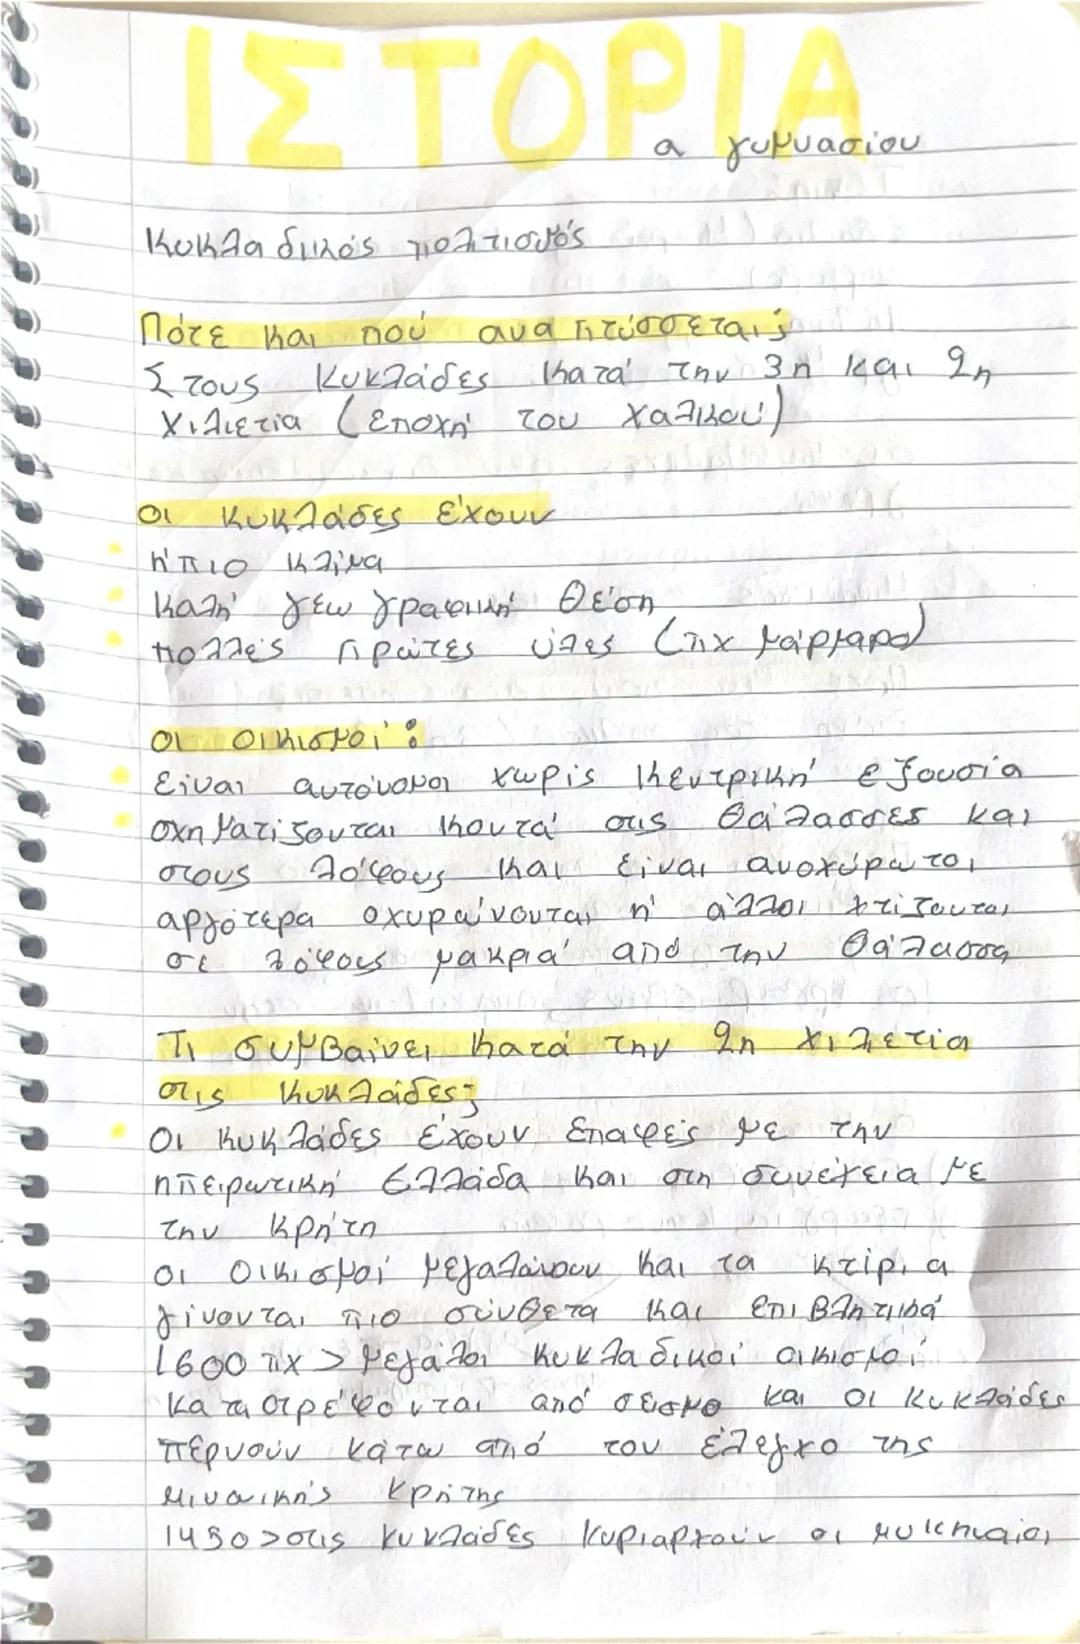 ΙΣΤΟΡΙΑ
α γυμνασίου
Κυκλαδικός πολιτισμός
Πότε και πού αναπτύσσεται;
Στους Κυκλάδες κατά την 3η και 2η
χιλιετία (εποχή του χαλκού)
Οι Κυκλάδες έχουν
ήπιο κλίμα
καλή γεωγραφική θέση
πολλές πρώτες ύλες (πχ μάρμαρο)
Οι οικισμοί:
είναι αυτόνομοι χωρίς κεντρική εξουσία
σχηματίζονται κοντά στις θάλασσες και
στους λόφους και είναι ανοχύρωτοι
αργότερα οχυρώνονται ή άλλοι χτίζονται
σε λόφους μακριά από την θάλασσα
Τι συμβαίνει κατά την 2η χιλιετία
στις Κυκλάδες;
Οι Κυκλάδες έχουν επαφές με την
ηπειρωτική Ελλάδα και στη συνέχεια με
την Κρήτη
οι οικισμοί μεγαλώνουν και τα κτίρια
γίνονται πιο σύνθετα και επιβλητικά
1600 πχ > μεγάλοι κυκλαδικοί οικισμοί
καταστρέφονται από σεισμο και οι Κυκλάδες
περνούν κάτω από τον έλεγχο της
μινωικής Κρήτης
1450 > στις Κυκλάδες κυριαρχούν οι μυκηναίοι